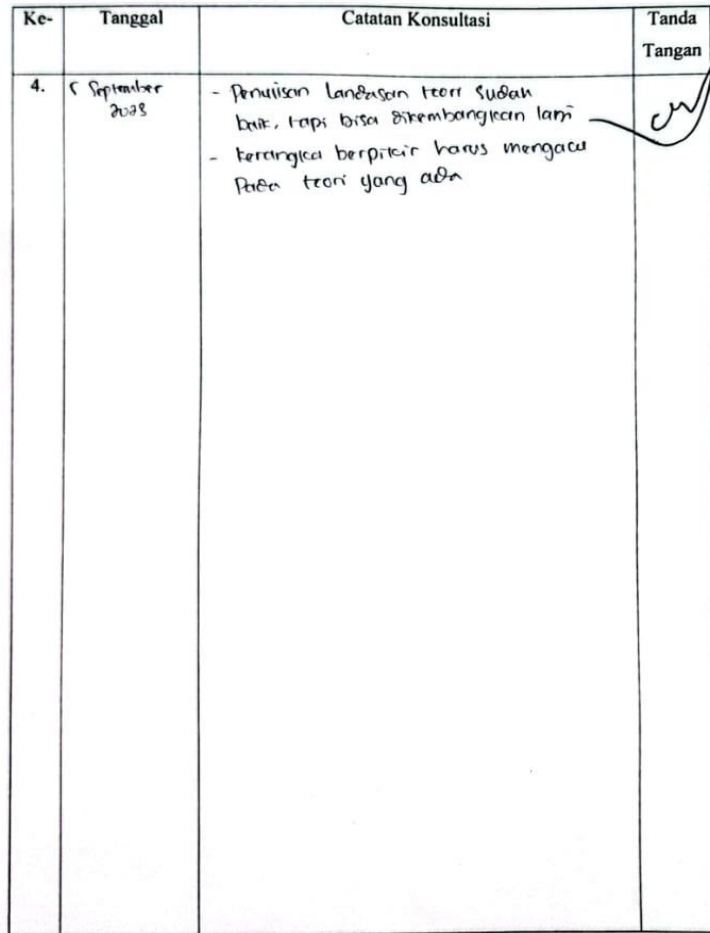 Ke- Tanggal Catatan Konsultasi Tanda
Tangan
4. 5 September - Penulisan Landasan teori Sudah
2023 baik, tapi bisa dikembangkan lagi
- kerangka berpikir harus mengacu
Pada teori yang ada